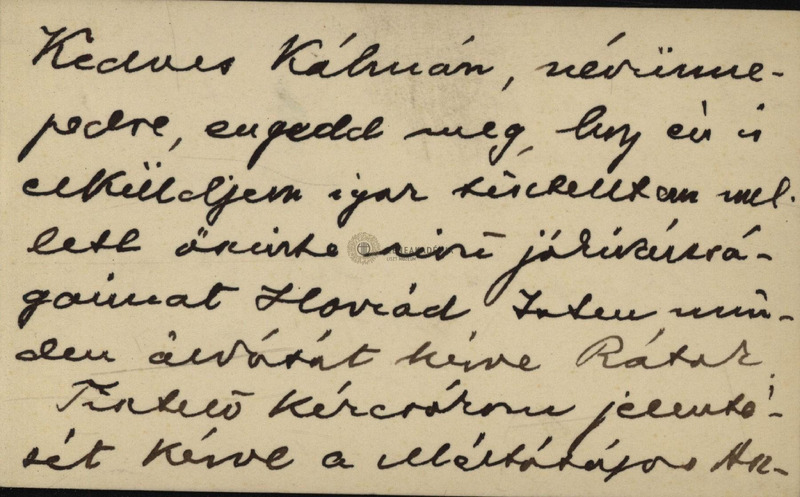 Kedves Kálmán, névünne-
pedre, engedd meg, hogy én is
elküldjem igaz tisztelettem mel-
lett őszinte szívű jókívánsá-
gaimat Hozzád Isten min-
den áldását kérve Rátok.
Tisztelő kézcsókom jelenté-
sét kérve a Méltóságos As-